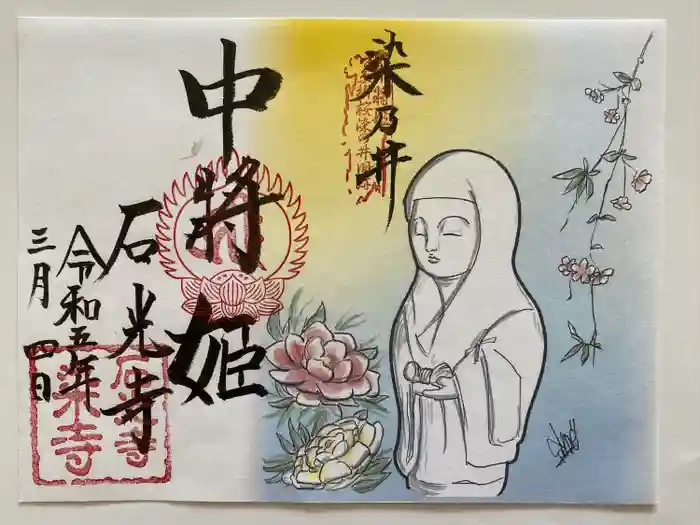 染乃井
中將姫
石光寺
令和五年
三月四日
染寺